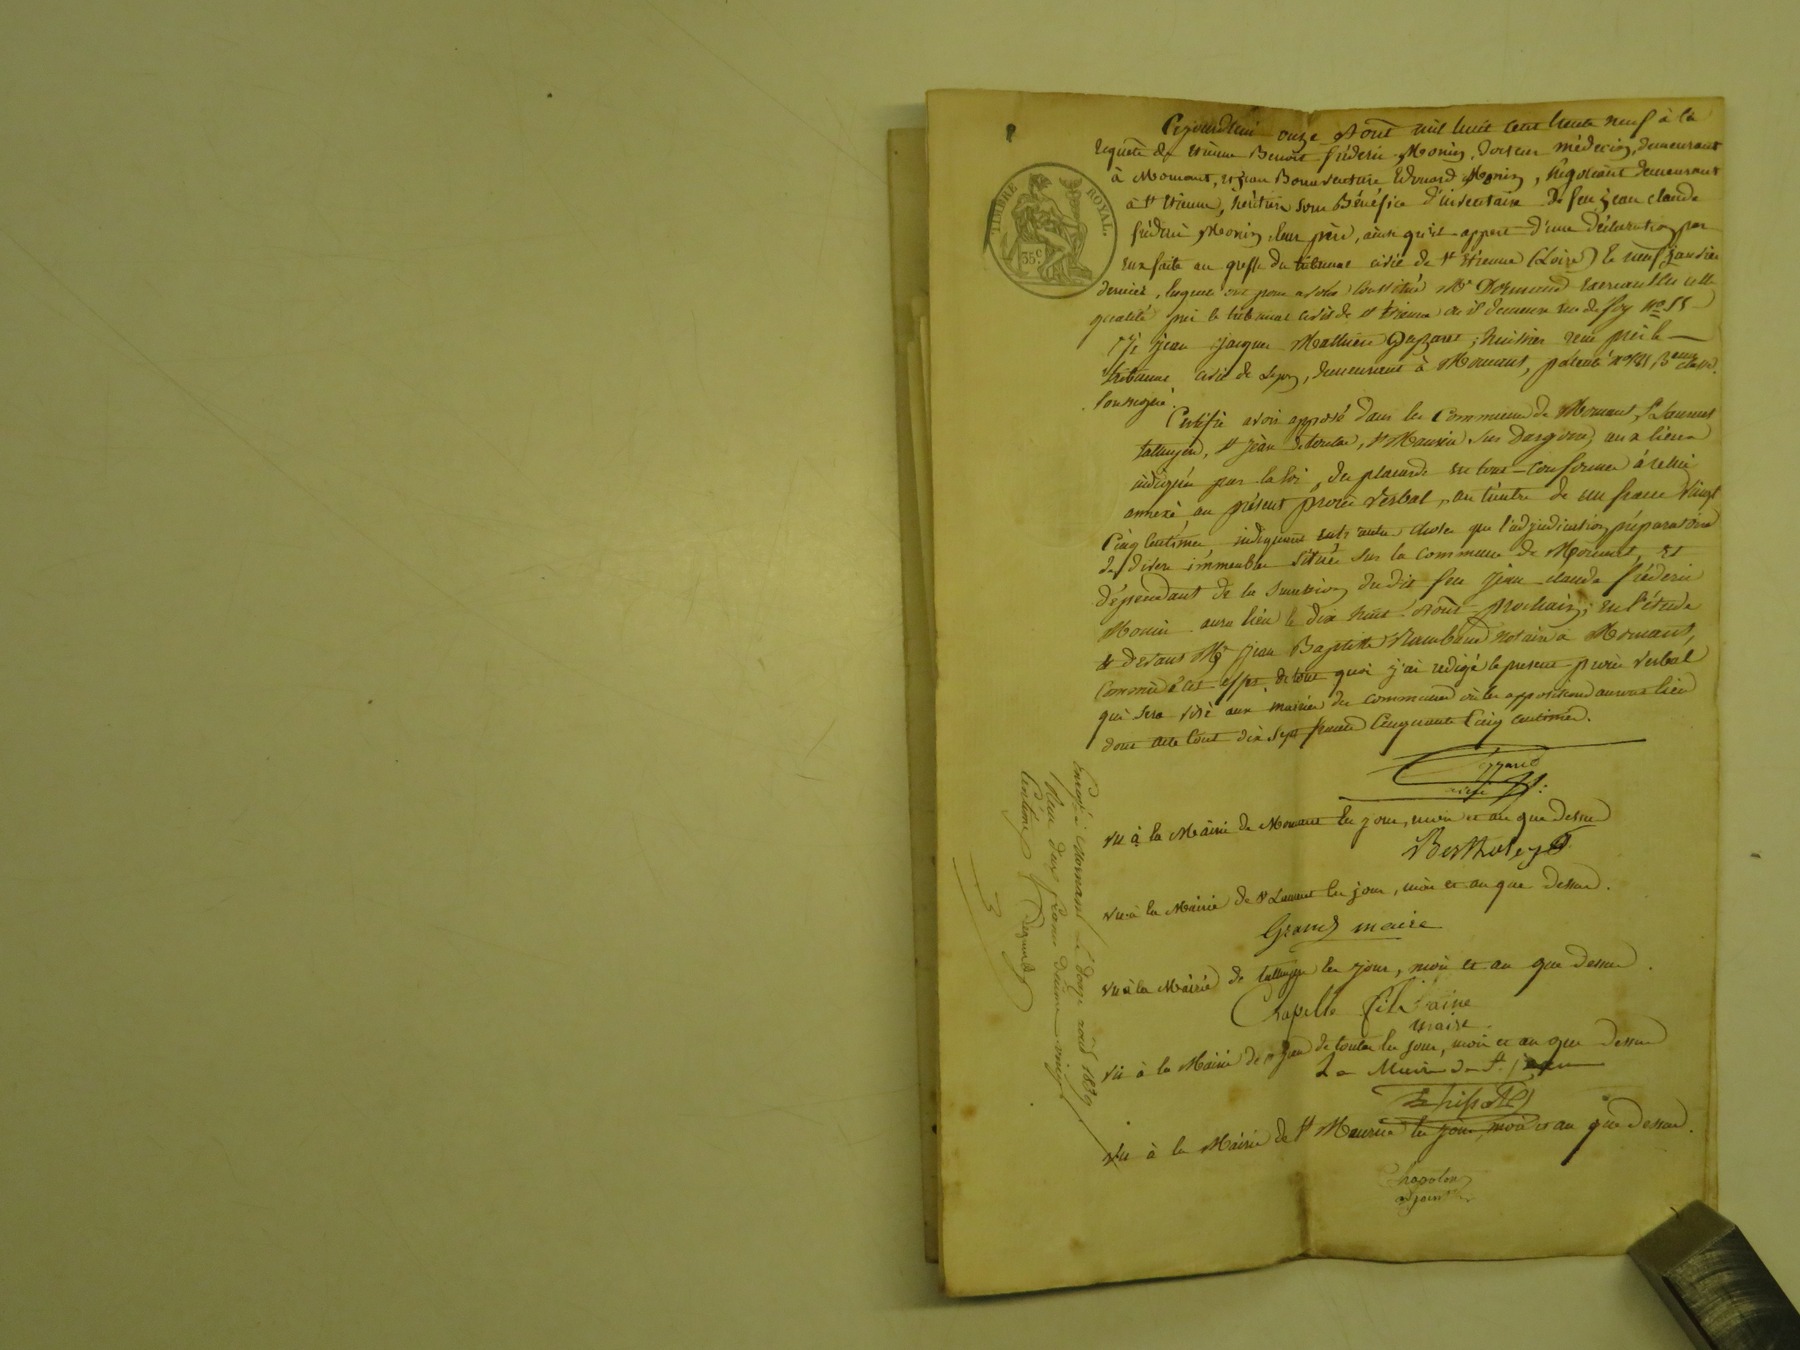 Cejourdhui onze Aout mil huit cent trente neuf à la
Requète de Etienne Benoit frédéric Monin, docteur médecin, demeurant
à Mornant, et jean Bonaventure Edouard Monin, Négotiant demeurant
à St Etienne, héritiers sous Bénéfice d'inventaire De feu jean claude
frédéric Monin, leur père, ainsi qu'il appert d'une déclaration par
eux faite au greffe du tribunal civil de St Etienne (Loire) le neuf janvier
dernier, lequels ont pour avoué Constitué Me exercant en cette
qualité près le tribunal civil de St Etienne où il demeure rue de foy No 15
jean jacques Mathieu huissier reçu près le
tribunal civil de Lyon, demeurant à Mornant, patenté 3eme classe.
soussigné.
Certifie avoir apposé dans les Communes de Mornant, St Laurent
St jean de toulas, St Maurice sur Dargoire, aux lieux
indiqués par la loi, des placards en tout conformes à celui
annexé au présent procès Verbal, au timbre de un franc Vingt
Cinq Centimes indiquant entr'autre chose que l'adjudication préparatoire
de divers immeubles situés sur la commune de Mornant, et
dépendant de la succession du dit feu jean claude frédéric
Monin aura lieu le dix huit Aout prochain, en l'étude
& devant Me jean Baptiste notaire à Mornant,
Commis à cet effet, de tout quoi j'ai redigé le present procès Verbal
qui sera visé aux mairies des communes où les appositions auront lieu
dont acte Cout dix sept francs Cinquante Cinq centimes.
Vu à la Mairie de Mornant les jour, mois et an que dessus
Vu à la Mairie de St Laurent les jour, mois et an que dessus.
Grand maire
Vu à la Mairie de les jour, mois et an que dessus.
Chapelle fils aîné
maire
Vu à la Mairie de St jean de toulas les jour, mois et an que dessus
Le Maire de St jean
Vu à la Mairie de St Maurice les jour, mois et an que dessus.
Chapolon
adjoint
à Mornant Le douze août 1839
Reçu deux francs vingt
Centimes
TIMBRE ROYAL.
35c.